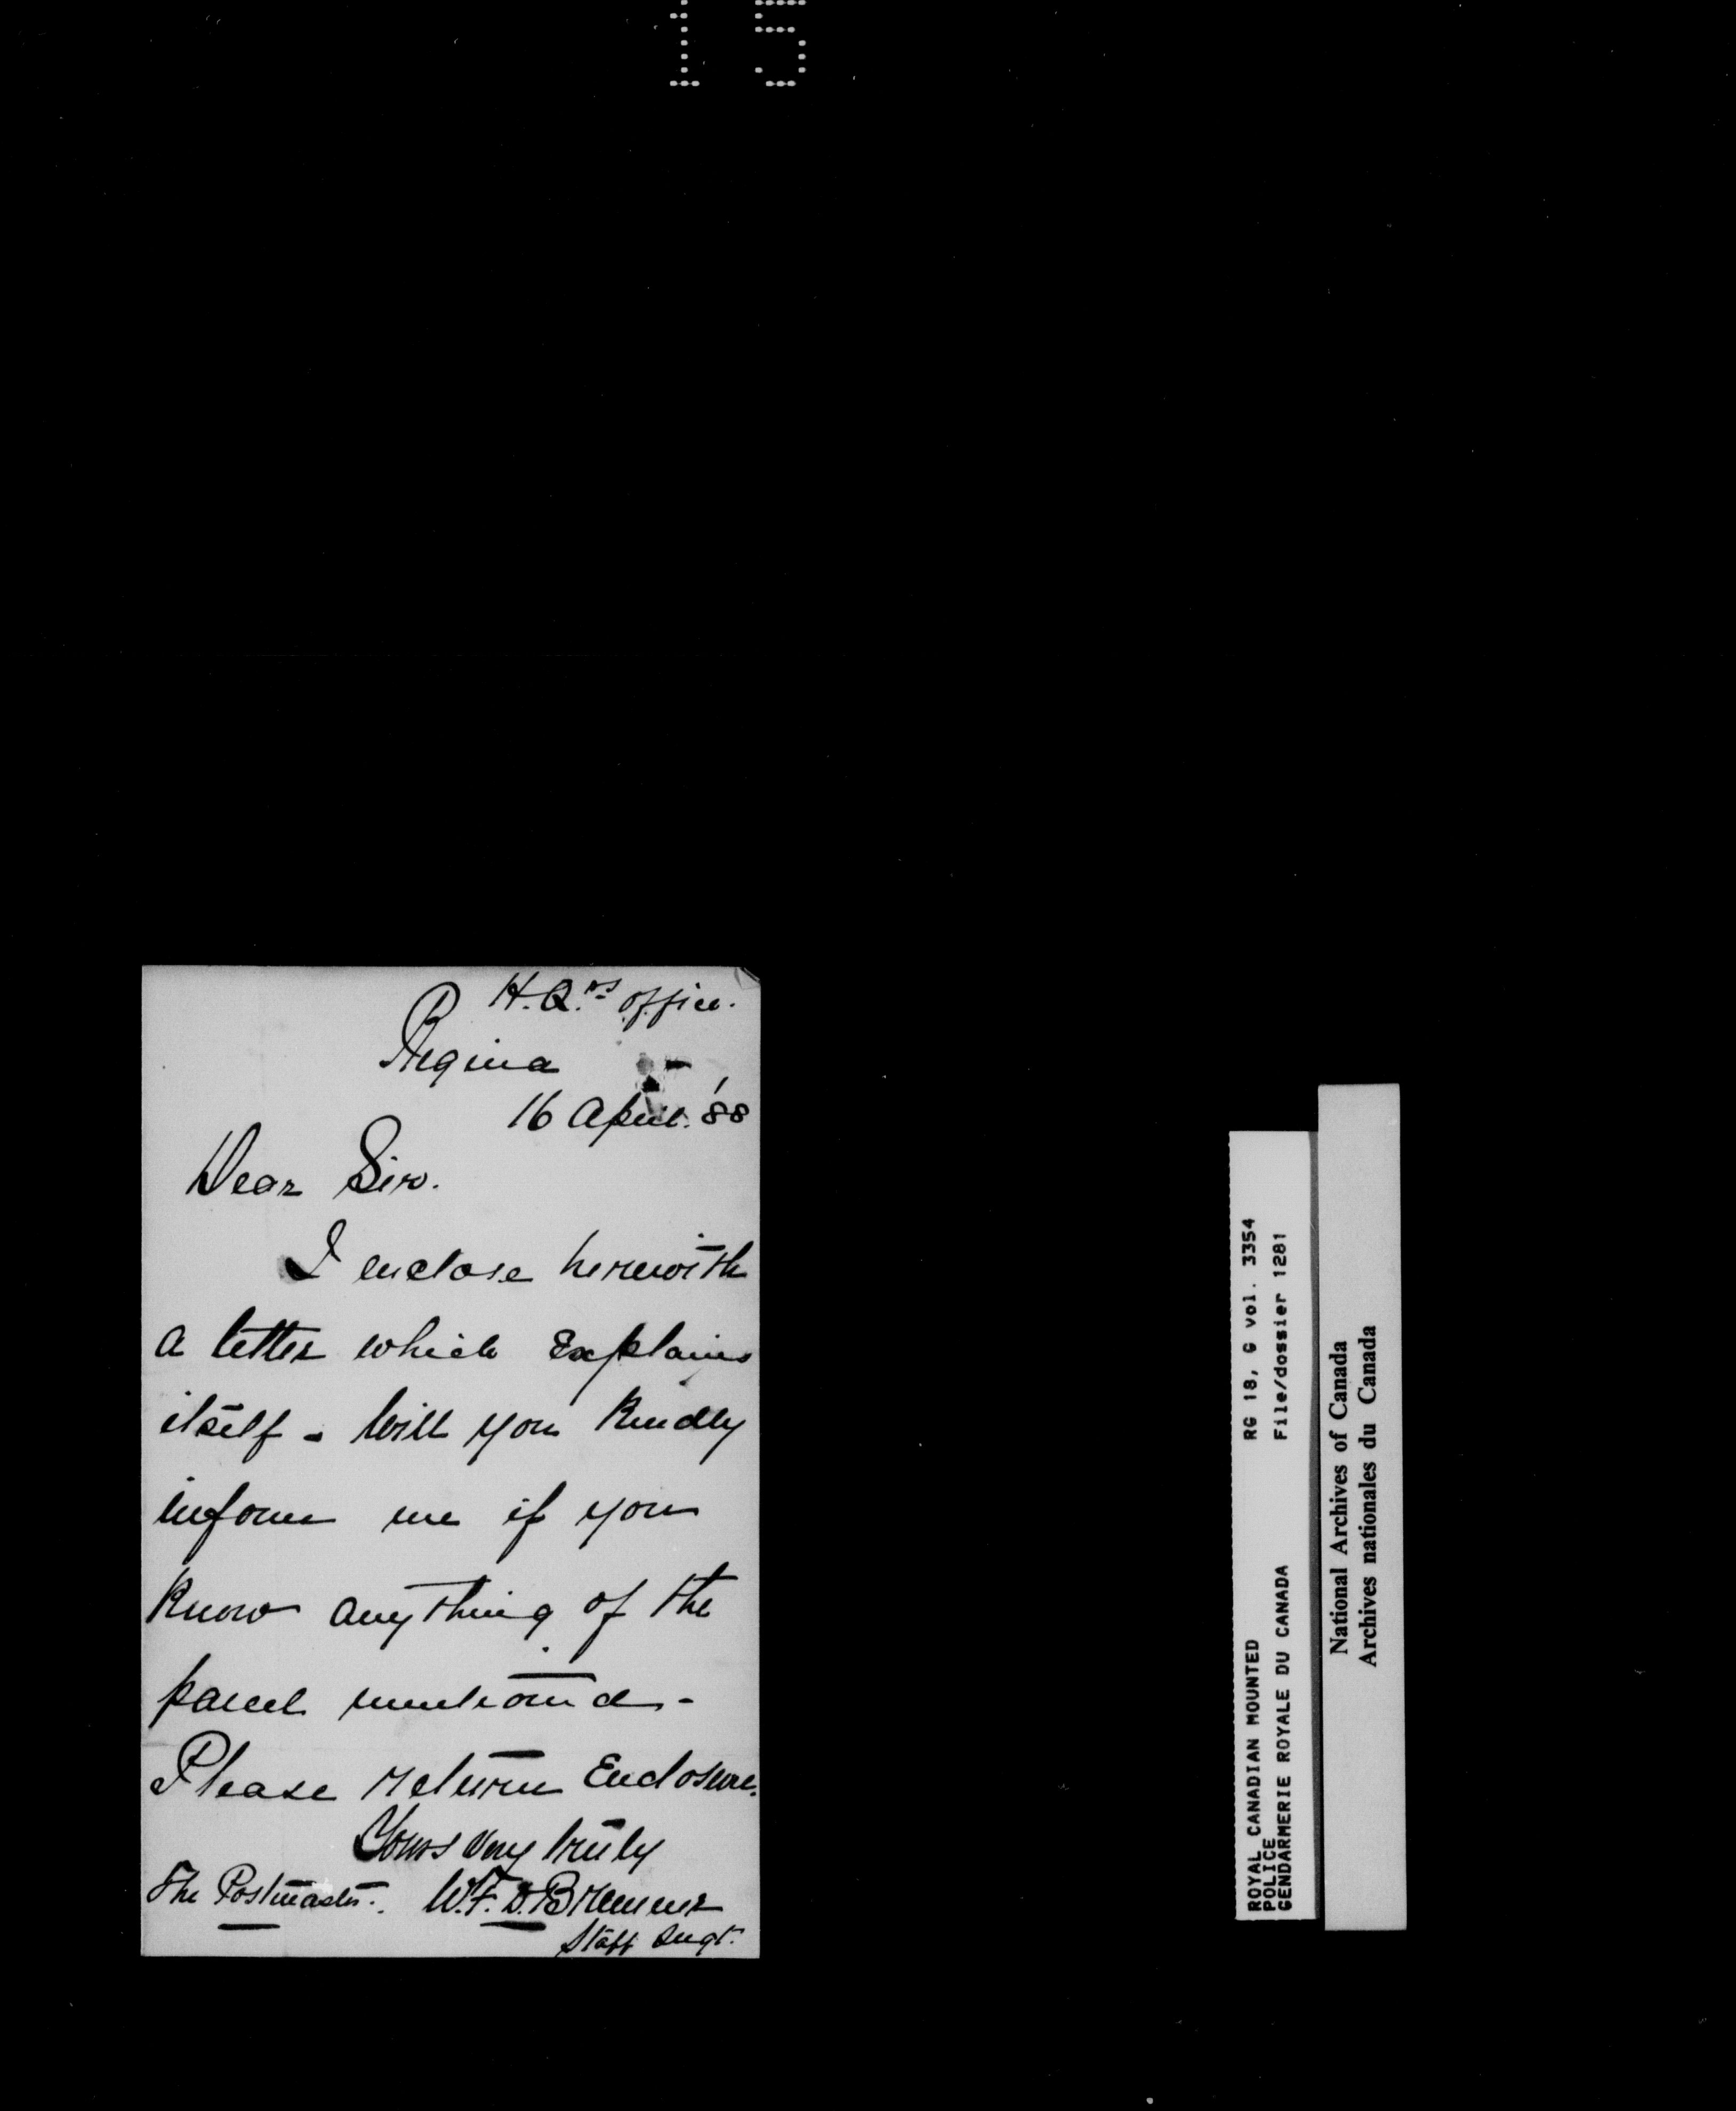 15
H.Q.rs Office.
Regina
16 April. '88
Dear Sir.
I enclose herewith
a letter which Explains
itself - Will you Kindly
inform me if you
Know anything of the
parcel mentioned. -
Please return Enclosure.
Yours very truly
The Postmaster. W.F.D. Bremner
Staff Sergt.
ROYAL CANADIAN MOUNTED RG 18, G vol. 3354
POLICE
GENDARMERIE ROYALE DU CANADA File/dossier 1281
National Archives of Canada
Archives nationales du Canada